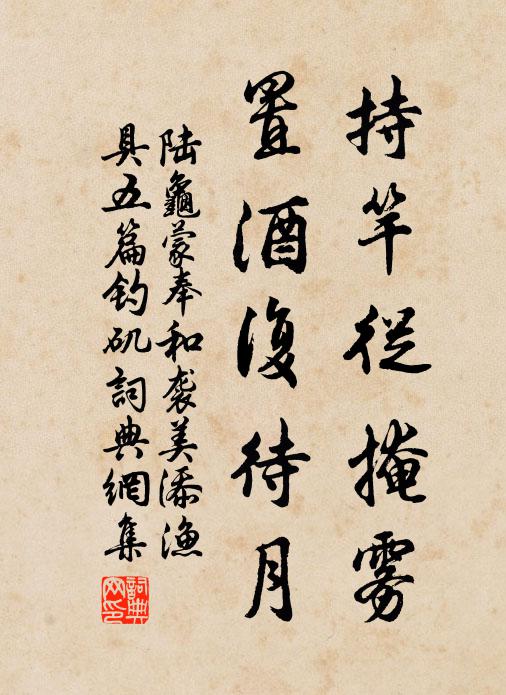 持竿從掩霧
置酒復待月
陆龜蒙奉和袭美添漁
具五篇釣矶詞典網集
詞典網印